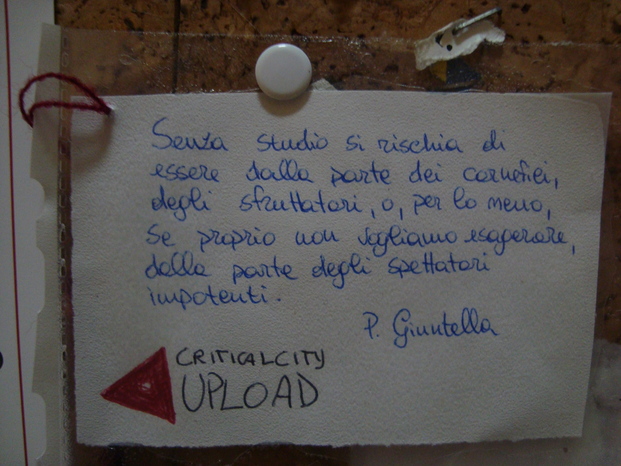 Senza studio si rischia di
essere dalla parte dei carnefici,
degli sfruttatori, o, per lo meno,
se proprio non vogliamo esagerare,
dalla parte degli spettatori
impotenti.
P. Giuntella
CRITICALCITY
UPLOAD